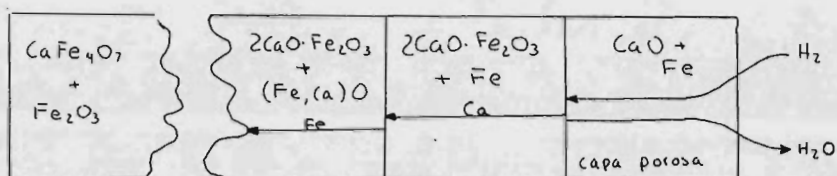 CaFe₄O₇
+
Fe₂O₃
2CaO·Fe₂O₃
+
(Fe,Ca)O
Fe
2CaO·Fe₂O₃
+ Fe
Ca
CaO +
Fe
capa porosa
H₂
H₂O